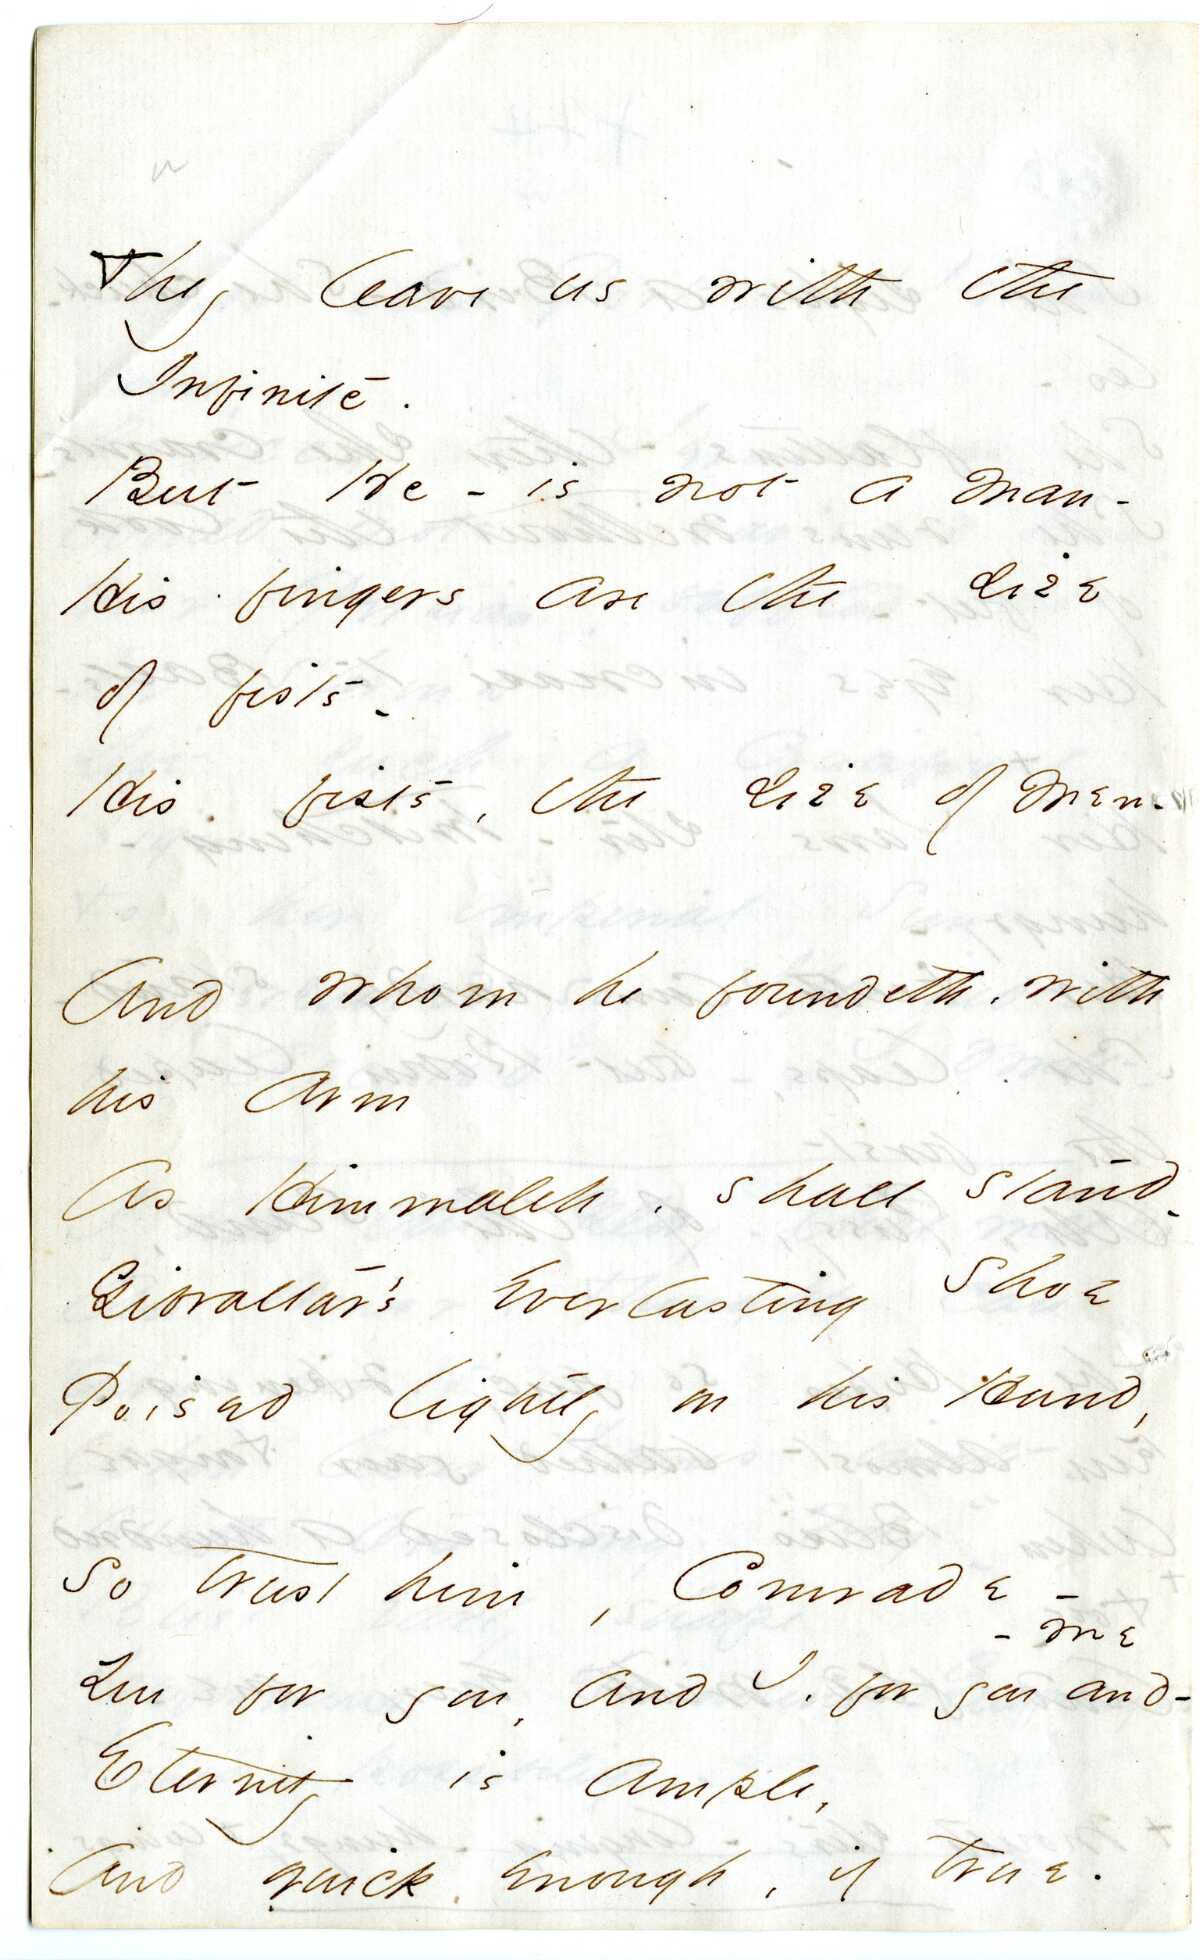 They leave us with the
Infinite.
But He - is not a man -
His fingers are the size
of fists -
His fists, the size of men -
And whom he foundeth, with
his Arm
As Himmaleh, shall stand -
Gibraltar's Everlasting Shoe
Poised lightly on his Hand,
So trust him, Comrade -
You for you, and I, for you and - me
Eternity is ample,
And quick enough, if true.